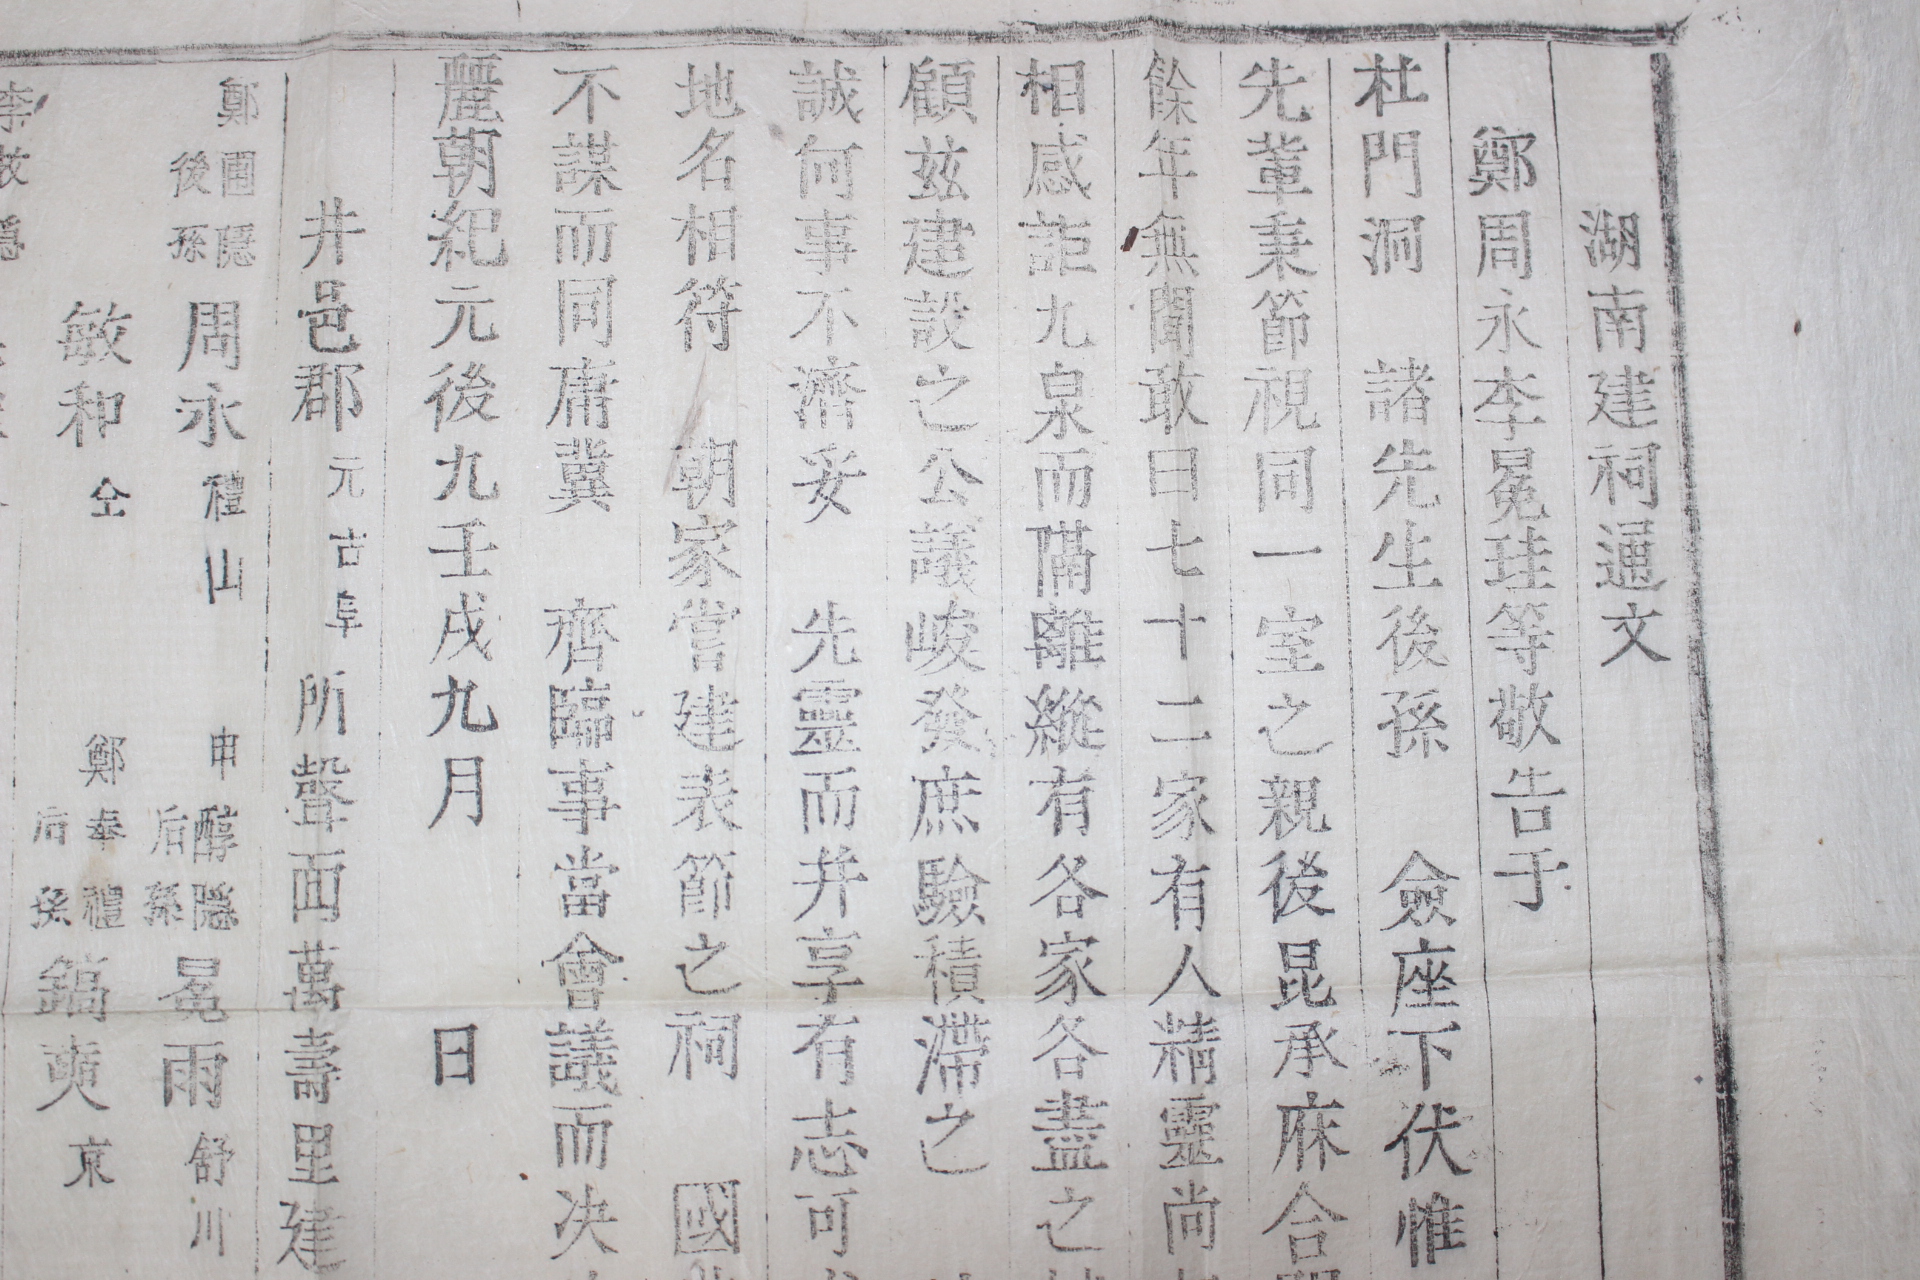 湖南建祠通文
鄭周永李冕珪等敬告于
杜門洞 諸先生後孫 僉座下伏惟
先輩秉節視同一室之親後昆承庥合
餘年無聞敢曰七十二家有人精靈尚
相感詎九泉而隔離縱有各家各盡之
顧玆建設之公議峻發庶驗積滯之
誠何事不濟妥 先靈而并享有志可
地名相符 朝家嘗建表節之祠 國
不謀而同庸冀 齊臨事當會議而决
麗朝紀元後九壬戌九月 日
井邑郡元古阜所聲面萬壽里建
鄭圃隱後孫 周永 禮山 申醇隱后孫 冕雨 舒川
敏和 仝 鄭奉禮后孫 鎬奭 京
李牧隱